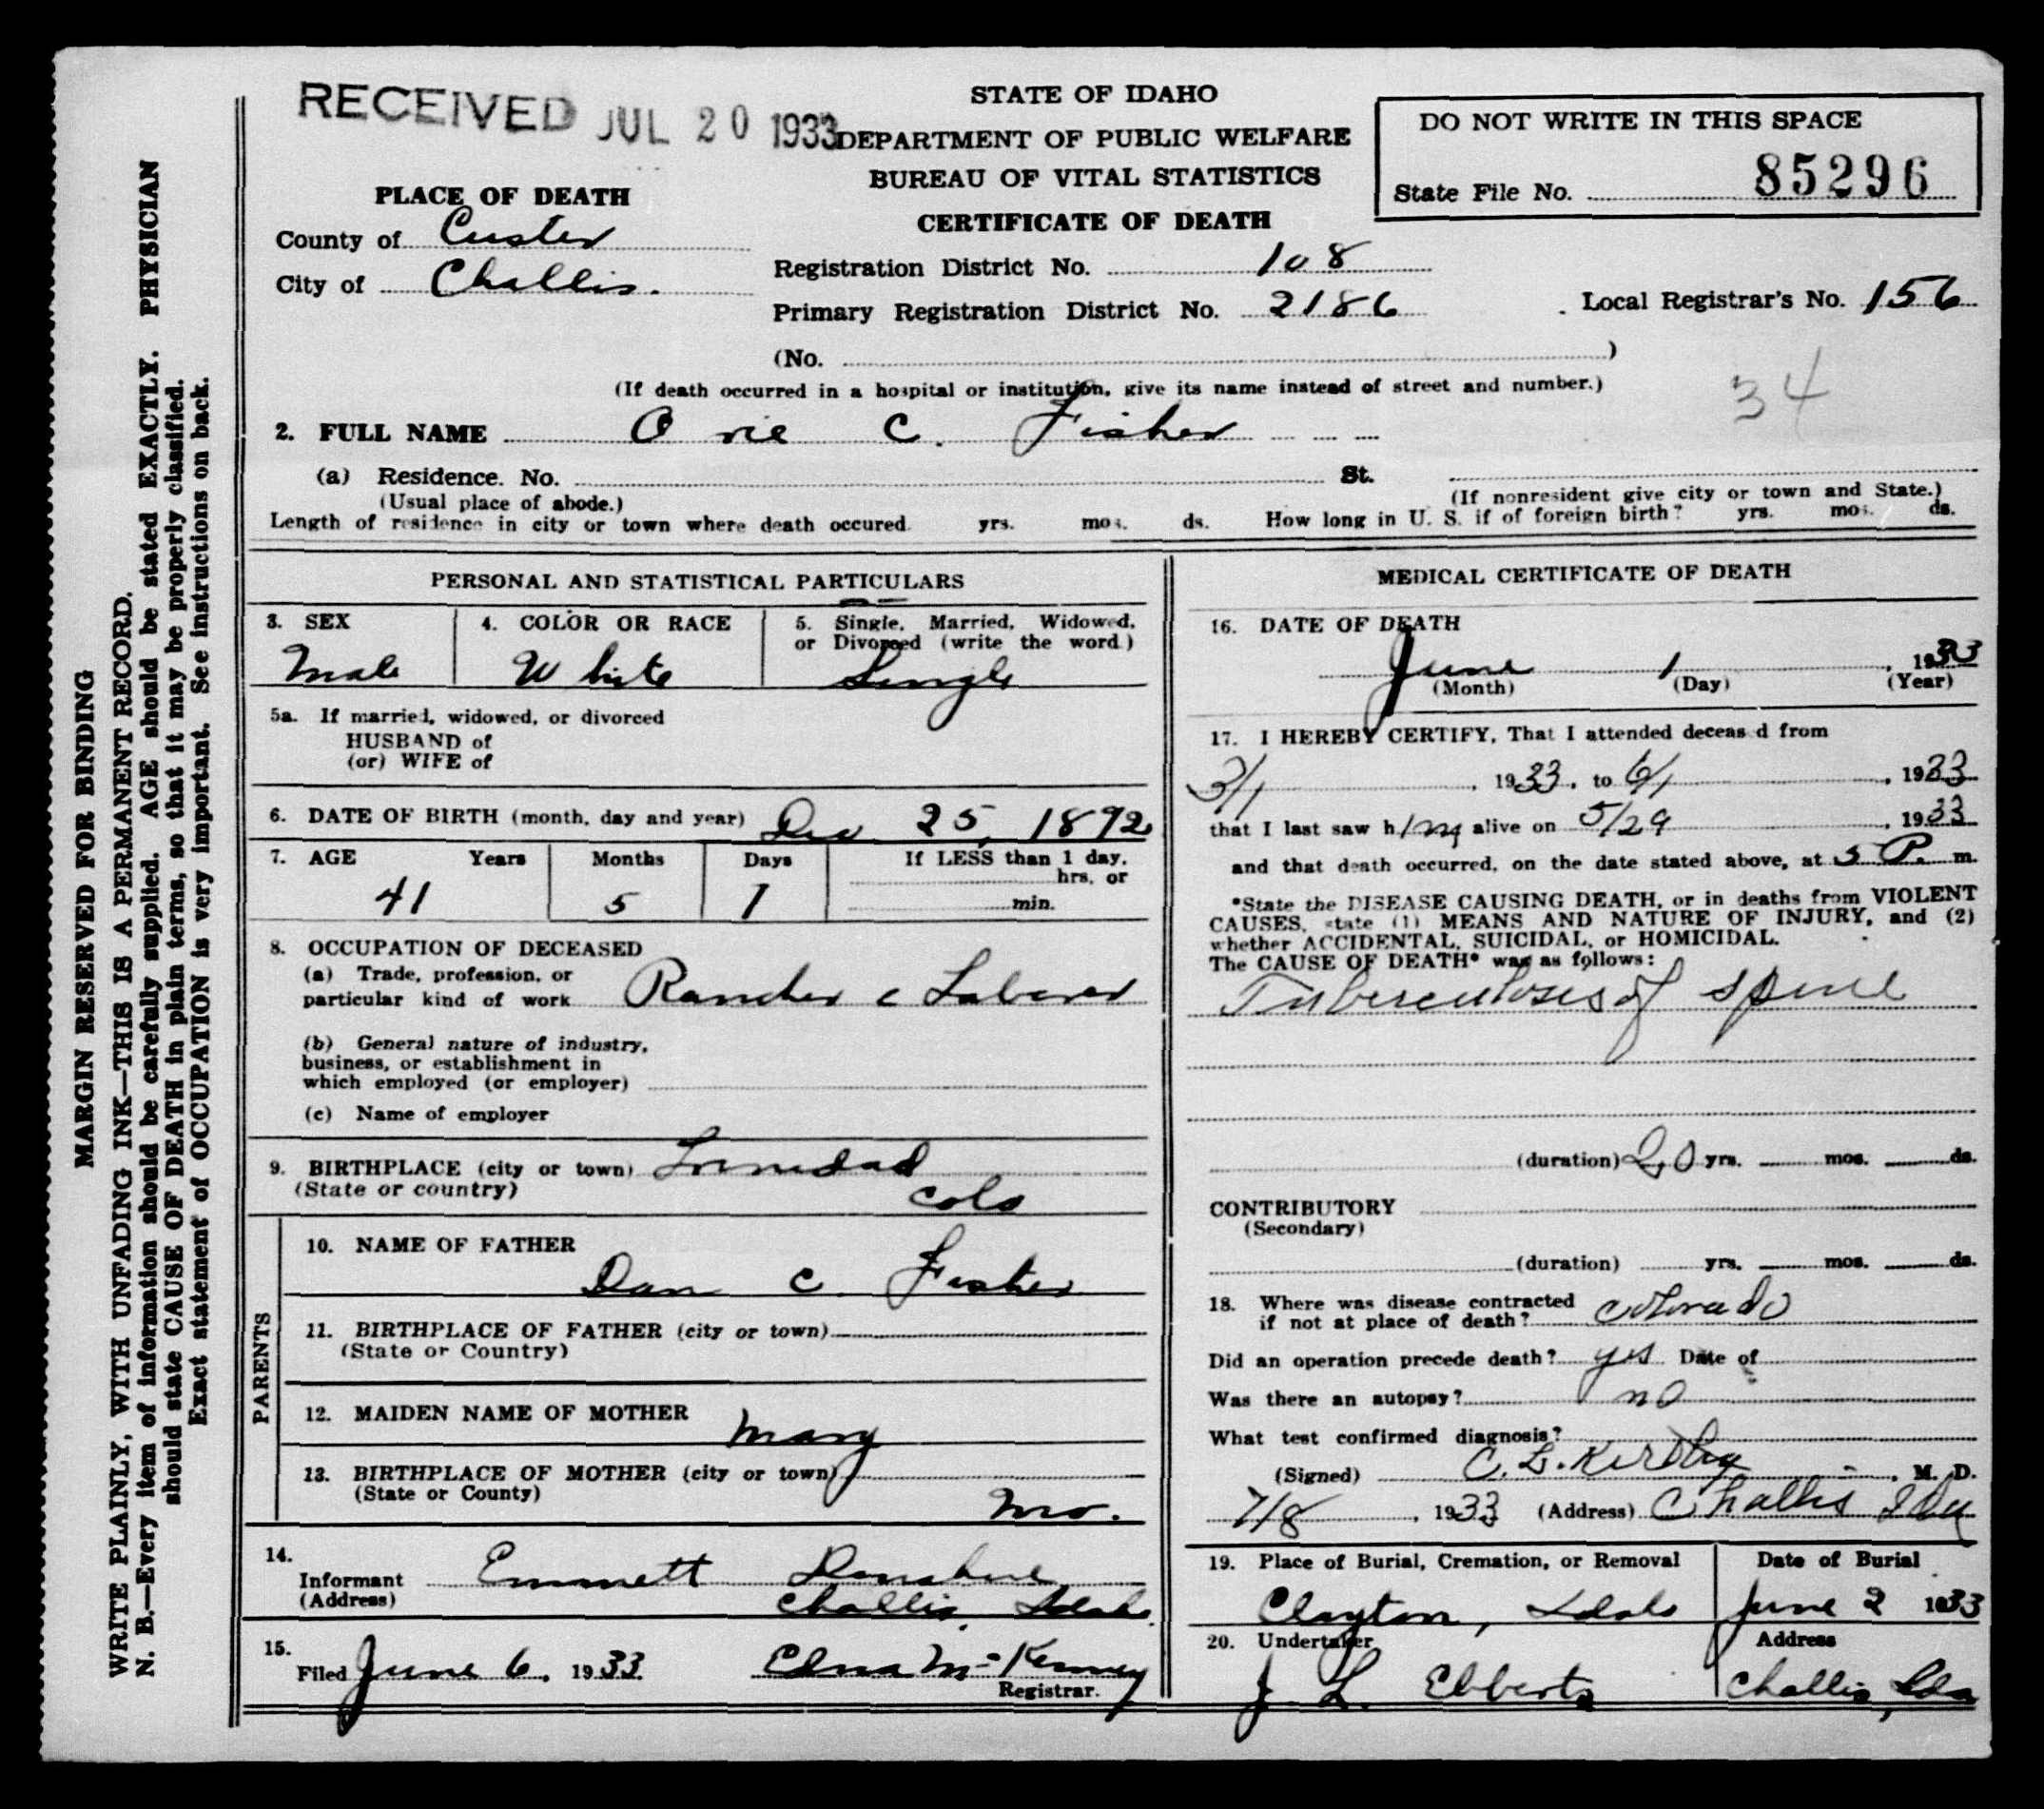 RECEIVED JUL 20 1933
STATE OF IDAHO
DEPARTMENT OF PUBLIC WELFARE
BUREAU OF VITAL STATISTICS
CERTIFICATE OF DEATH
DO NOT WRITE IN THIS SPACE
State File No. 85296
PLACE OF DEATH
County of Custer
City of Challis.
Registration District No. 108
Primary Registration District No. 2186
Local Registrar's No. 156
(No. )
34
(If death occurred in a hospital or institution, give its name instead of street and number.)
2. FULL NAME Orie C. Fisher
(a) Residence. No. St.
(Usual place of abode.)
(If nonresident give city or town and State.)
Length of residence in city or town where death occured. yrs. mos. ds. How long in U. S. if of foreign birth? yrs. mos. ds.
PERSONAL AND STATISTICAL PARTICULARS
3. SEX
Male
4. COLOR OR RACE
White
5. Single, Married, Widowed,
or Divorced (write the word)
Single
5a. If married, widowed, or divorced
HUSBAND of
(or) WIFE of
6. DATE OF BIRTH (month, day and year) Dec 25, 1892
7. AGE Years Months Days If LESS than 1 day,
hrs. or
41 5 7 min.
8. OCCUPATION OF DECEASED
(a) Trade, profession, or
particular kind of work Rancher & Laborer
(b) General nature of industry,
business, or establishment in
which employed (or employer)
(c) Name of employer
9. BIRTHPLACE (city or town) Trinidad
(State or country) Colo
PARENTS
10. NAME OF FATHER
Dan C. Fisher
11. BIRTHPLACE OF FATHER (city or town)
(State or Country)
12. MAIDEN NAME OF MOTHER
Mary
13. BIRTHPLACE OF MOTHER (city or town)
(State or County)
Mo.
14.
Informant Emmett
(Address) Challis, Idaho
15.
Filed June 6, 1933. Edna McKenney
Registrar.
MEDICAL CERTIFICATE OF DEATH
16. DATE OF DEATH
June 1, 1933
(Month) (Day) (Year)
17. I HEREBY CERTIFY, That I attended deceased from
3/1, 1933, to 6/1, 1933
that I last saw him alive on 5/29, 1933
and that death occurred, on the date stated above, at 5 P. m.
*State the DISEASE CAUSING DEATH, or in deaths from VIOLENT
CAUSES, state (1) MEANS AND NATURE OF INJURY, and (2)
whether ACCIDENTAL, SUICIDAL, or HOMICIDAL.
The CAUSE OF DEATH* was as follows:
Tuberculosis of spine
(duration) 20 yrs. mos. ds.
CONTRIBUTORY
(Secondary)
(duration) yrs. mos. ds.
18. Where was disease contracted
if not at place of death? Colorado
Did an operation precede death? yes Date of
Was there an autopsy? no
What test confirmed diagnosis?
(Signed) C. L. Kirtley, M. D.
7/8, 1933 (Address) Challis Ida
19. Place of Burial, Cremation, or Removal Date of Burial
Clayton, Idaho June 2 1933
20. Undertaker Address
J L. Ebberts Challis, Ida
MARGIN RESERVED FOR BINDING
WRITE PLAINLY, WITH UNFADING INK—THIS IS A PERMANENT RECORD.
N. B.—Every item of information should be carefully supplied. AGE should be stated EXACTLY. PHYSICIAN
should state CAUSE OF DEATH in plain terms, so that it may be properly classified.
Exact statement of OCCUPATION is very important. See instructions on back.